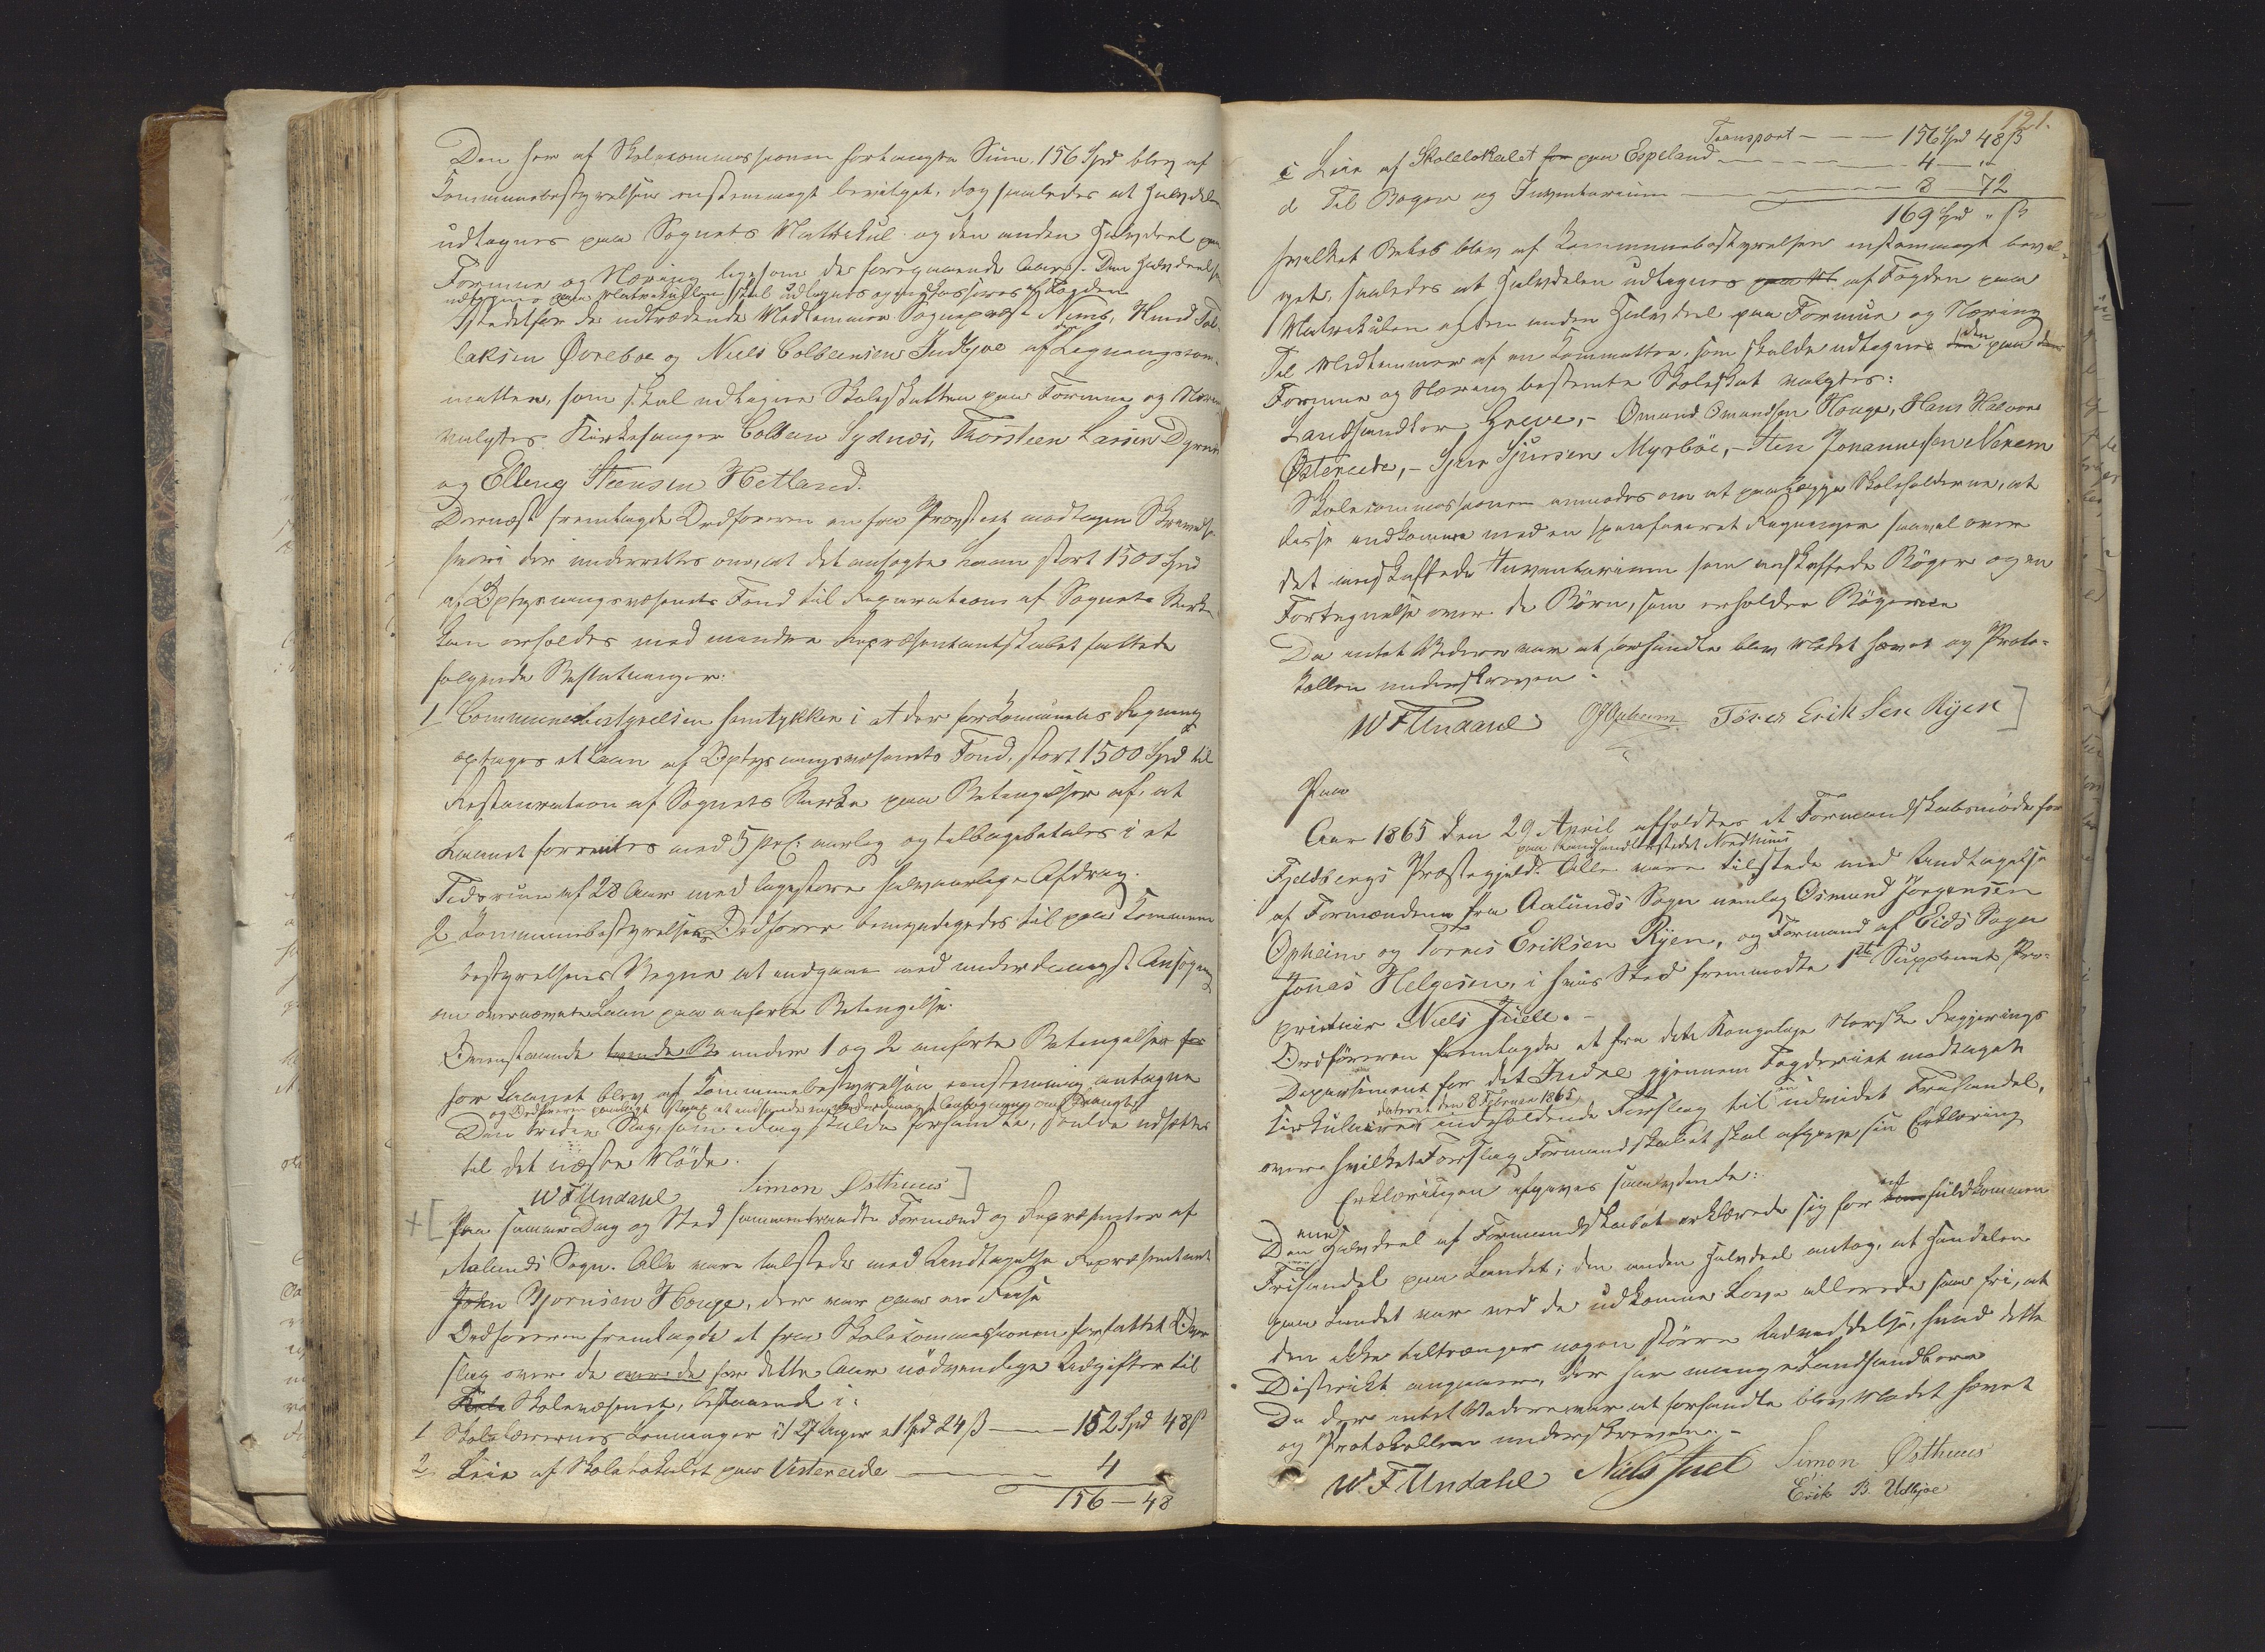 Den her af Skolecommissionen forlangte Sum, 156 Spd blev af
Kommunebestyrelsen enstemmigt bevilget, dog saaledes at Halvdelen
udlignes paa Sognets Matrikul og den anden Halvdeel paa
Formue og Næring ligesom de foregaaende Aar. Den Halvdeel som
udlignes paa Matrikullen skal udlignes og indkasseres af Fogden
Istedetfor de udtrædende Medlemmer Sognepræst Nims, Knud Tol-
laksen Øvrebøe og Niels Colbeensen Indbjoe af Legningscom-
mitteen, som skal udligne Skoleskatten paa Formue og Næring
valgtes Kirkesanger Colbeen Sydnæs, Thorsteen Larsen Dyrnæs
og Elling Steensen Hetland.
Dernæst fremlagde Ordføreren en fra Provstiet modtagen Skrivelse
hvori der underrettes om, at det ansøgte Laan stort 1500 Spd
af Oplysningsvæsenets Fond til Reparation af Sognets Kirke
kan erholdes med mindre Repræsentantskabet fattede
følgende Beslutninger:
1 Communebestyrelsen samtykker i at der for Kommunens Regning
optages et Laan af Oplysningsvæsenets Fond, stort 1500 Spd til
Restauration af Sognets Kirke paa Betingelser af, at
Laanet forrentes med 5 prC. aarlig og tilbagebetales i et
Tidsrum af 28 Aar med ligestore halvaarlige Afdrag.
2 Kommunebestyrelsens Ordfører bemyndigedes til paa Kommune
bestyrelsens Vegne at indgaae med underdanigst Ansøgning
om ovennævnte Laan paa anførte Betingelse.
Ovenstaaende tvende B under 1 og 2 anførte Betingelser for
for Laanet blev af Kommunebestyrelsen eenstemmig antagne
og Ordføreren paalagt strax at indsende underdanigst Ansøgning om Laanet
Den tredie Sag, som idag skulde forhandles, skulde udsættes
til det næste Møde.
W F Undahl Simon Østhuus
Paa samme Dag og Sted sammentraadte Formænd og Repræsentanter af
Aalunds Sogn. Alle vare tilstede med Undtagelse Repræsentant
John Bjørnsen Houge, der var paa en Reise
Ordføreren fremlagde et fra Skolecommissionen forfattet Over
slag over de over de for dette Aar nødvendige Udgifter til
Skole Skolevæsenet, bestaaende i:
1 Skolelærernes Lønninger i 27 Uger a 1 Spd 24 ß — 152 Spd 48 ß
2 Leie af Skolelokalet paa Vestereide — 4
156 – 48
121.
Transport — 156 Spd 48 ß
c Leie af Skolelokalet for paa Espeland — 4 — "
d Til Bøger og Inventarium — 8 — 72
169 Spd " ß
hvilket Beløb blev af Kommunebestyrelsen enstemmigt bevil-
get, saaledes at Halvdelen udlignes paa M af Fogden paa
Matrikulen og den anden Halvdeel paa Formue og Næring
Til Medlemmer af en Committee, som skulde udligne den paa den
Formue og Næring bestemte Skoleskat valgtes:
Landhandler Greve, – Omund Omundsen Houge, Hans Halvors
Østereide, – Sjur Sjursen Myrbøe, – Sten Johannessen Nerem
Skolecommissionen anmodes om at paalægge Skoleholderne, at
disse indkomme med en specificeret Regninger saavel over
det indskaffede Inventarium som anskaffede Bøger og en
Fortegnelse over de Børn, som erholder Bøgerne
Da intet Videre var at forhandle blev Mødet hævet og Proto-
kollen underskreven.
W F Undahl OJOpheim Tøres Erik Sen Rÿen
Paa
Aar 1865 den 29 April afholdtes et Formandskabsmøde for
paa Landhandlerstedet Nordhuus
Fjeldbergs Præstegjeld. Alle vare tilstede med Undtagelse
af Formændene fra Aalunds Sogn nemlig Osmund Jørgensen
Opheim og Tørres Eriksen Rÿen, og Formand af Eids Sogn
Jonas Helgesen, i hvis Sted fremmødte 1ste Suppleant Pro-
prietair Niels Juell. –
Ordføreren fremlagde et fra det Kongelige Norske Regjerings
Departement for det Indre gjennem Fogderiet modtaget
dateret den 8 Februar 1865
Circulaire indeholdende Forslag til en udvidet Frihandel,
over hvilket Forslag Formandskabet skal afgive sin Erklæring
Erklæringen afgaves saalydende:
Den ene Halvdeel af Formandskabet erklærede sig for en fuldkommen
Frihandel paa Landet; den anden Halvdeel antog, at Handelen
paa Landet var ved de udkomne Love allerede saa fri, at
den ikke tiltrænger nogen større Udvidelse, hvad dette
Distrikt angaaer, der har mange Landhandlere
Da der intet Videre var at forhandle blev Mødet hævet
og Protokollen underskreven. –
W. F Undahl Niels Juel Simon Østhuus
Erik B. Udbjoe